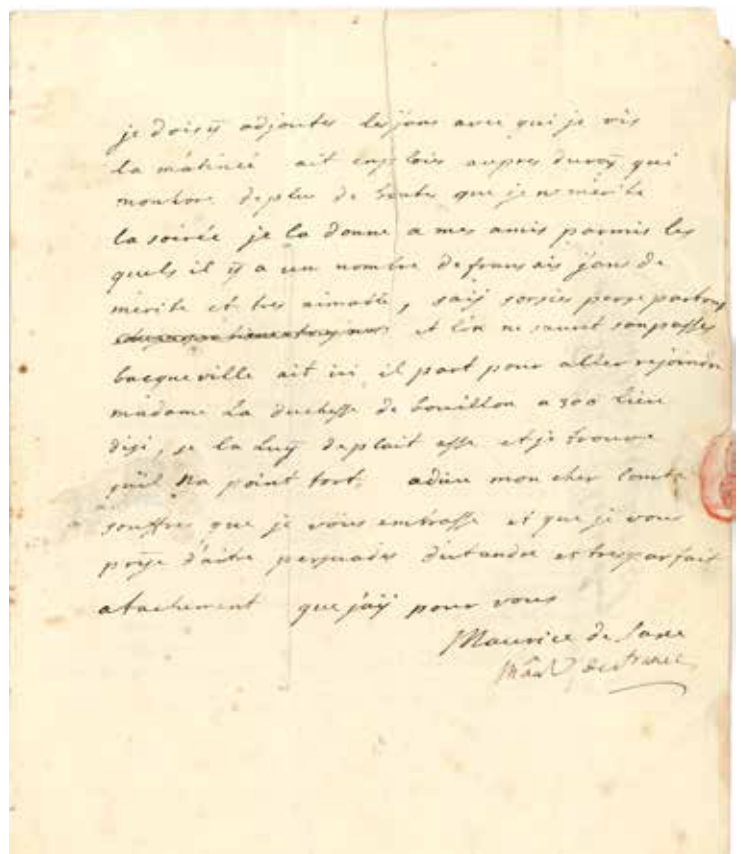 je dois ÿ adjouter les jans avec qui je vis
la mâtineé ait employeé aupres du roÿ qui
de plus de bontes que je ne mérite
la soireé je la donne a mes amis parmis les
quels il ÿ a un nombre de fransais jans de
mérite et tres aimable,
et l'on ne sauret sanpasser
bacqueville ait ici, il part pour aller rejoindre
madame La duchesse de bouillon a 300 lieu
disi, se la Luÿ deplait asse et je trouve
quil Na point tort. adieu mon cher Comte
souffres que je vous embrasse et que je vous
prije d'aitre persuades du tandre et tres parfait
atachement que j'aÿ pour vous
Maurice de Saxe
Mâal de france